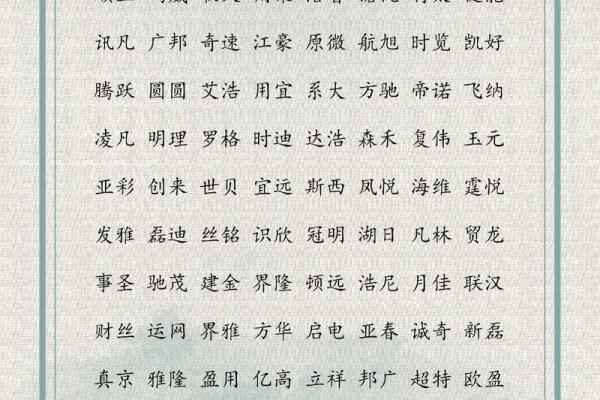 讯凡 广邦 奇速 江豪 原微 航旭 时览 凯好
腾跃 圆圆 艾浩 用宜 系大 方驰 帝诺 飞纳
凌凡 明理 罗格 时迪 达浩 森禾 复伟 玉元
亚彩 创来 世贝 宜远 斯西 凤悦 海维 霆悦
发雅 磊迪 丝铭 识欣 冠明 湖日 凡林 贸龙
事圣 驰茂 建金 界隆 顿远 浩尼 月佳 联汉
财丝 运网 界雅 方华 启电 亚春 诚奇 新磊
真京 雅隆 盈用 亿高 立祥 邦广 超特 欧盈